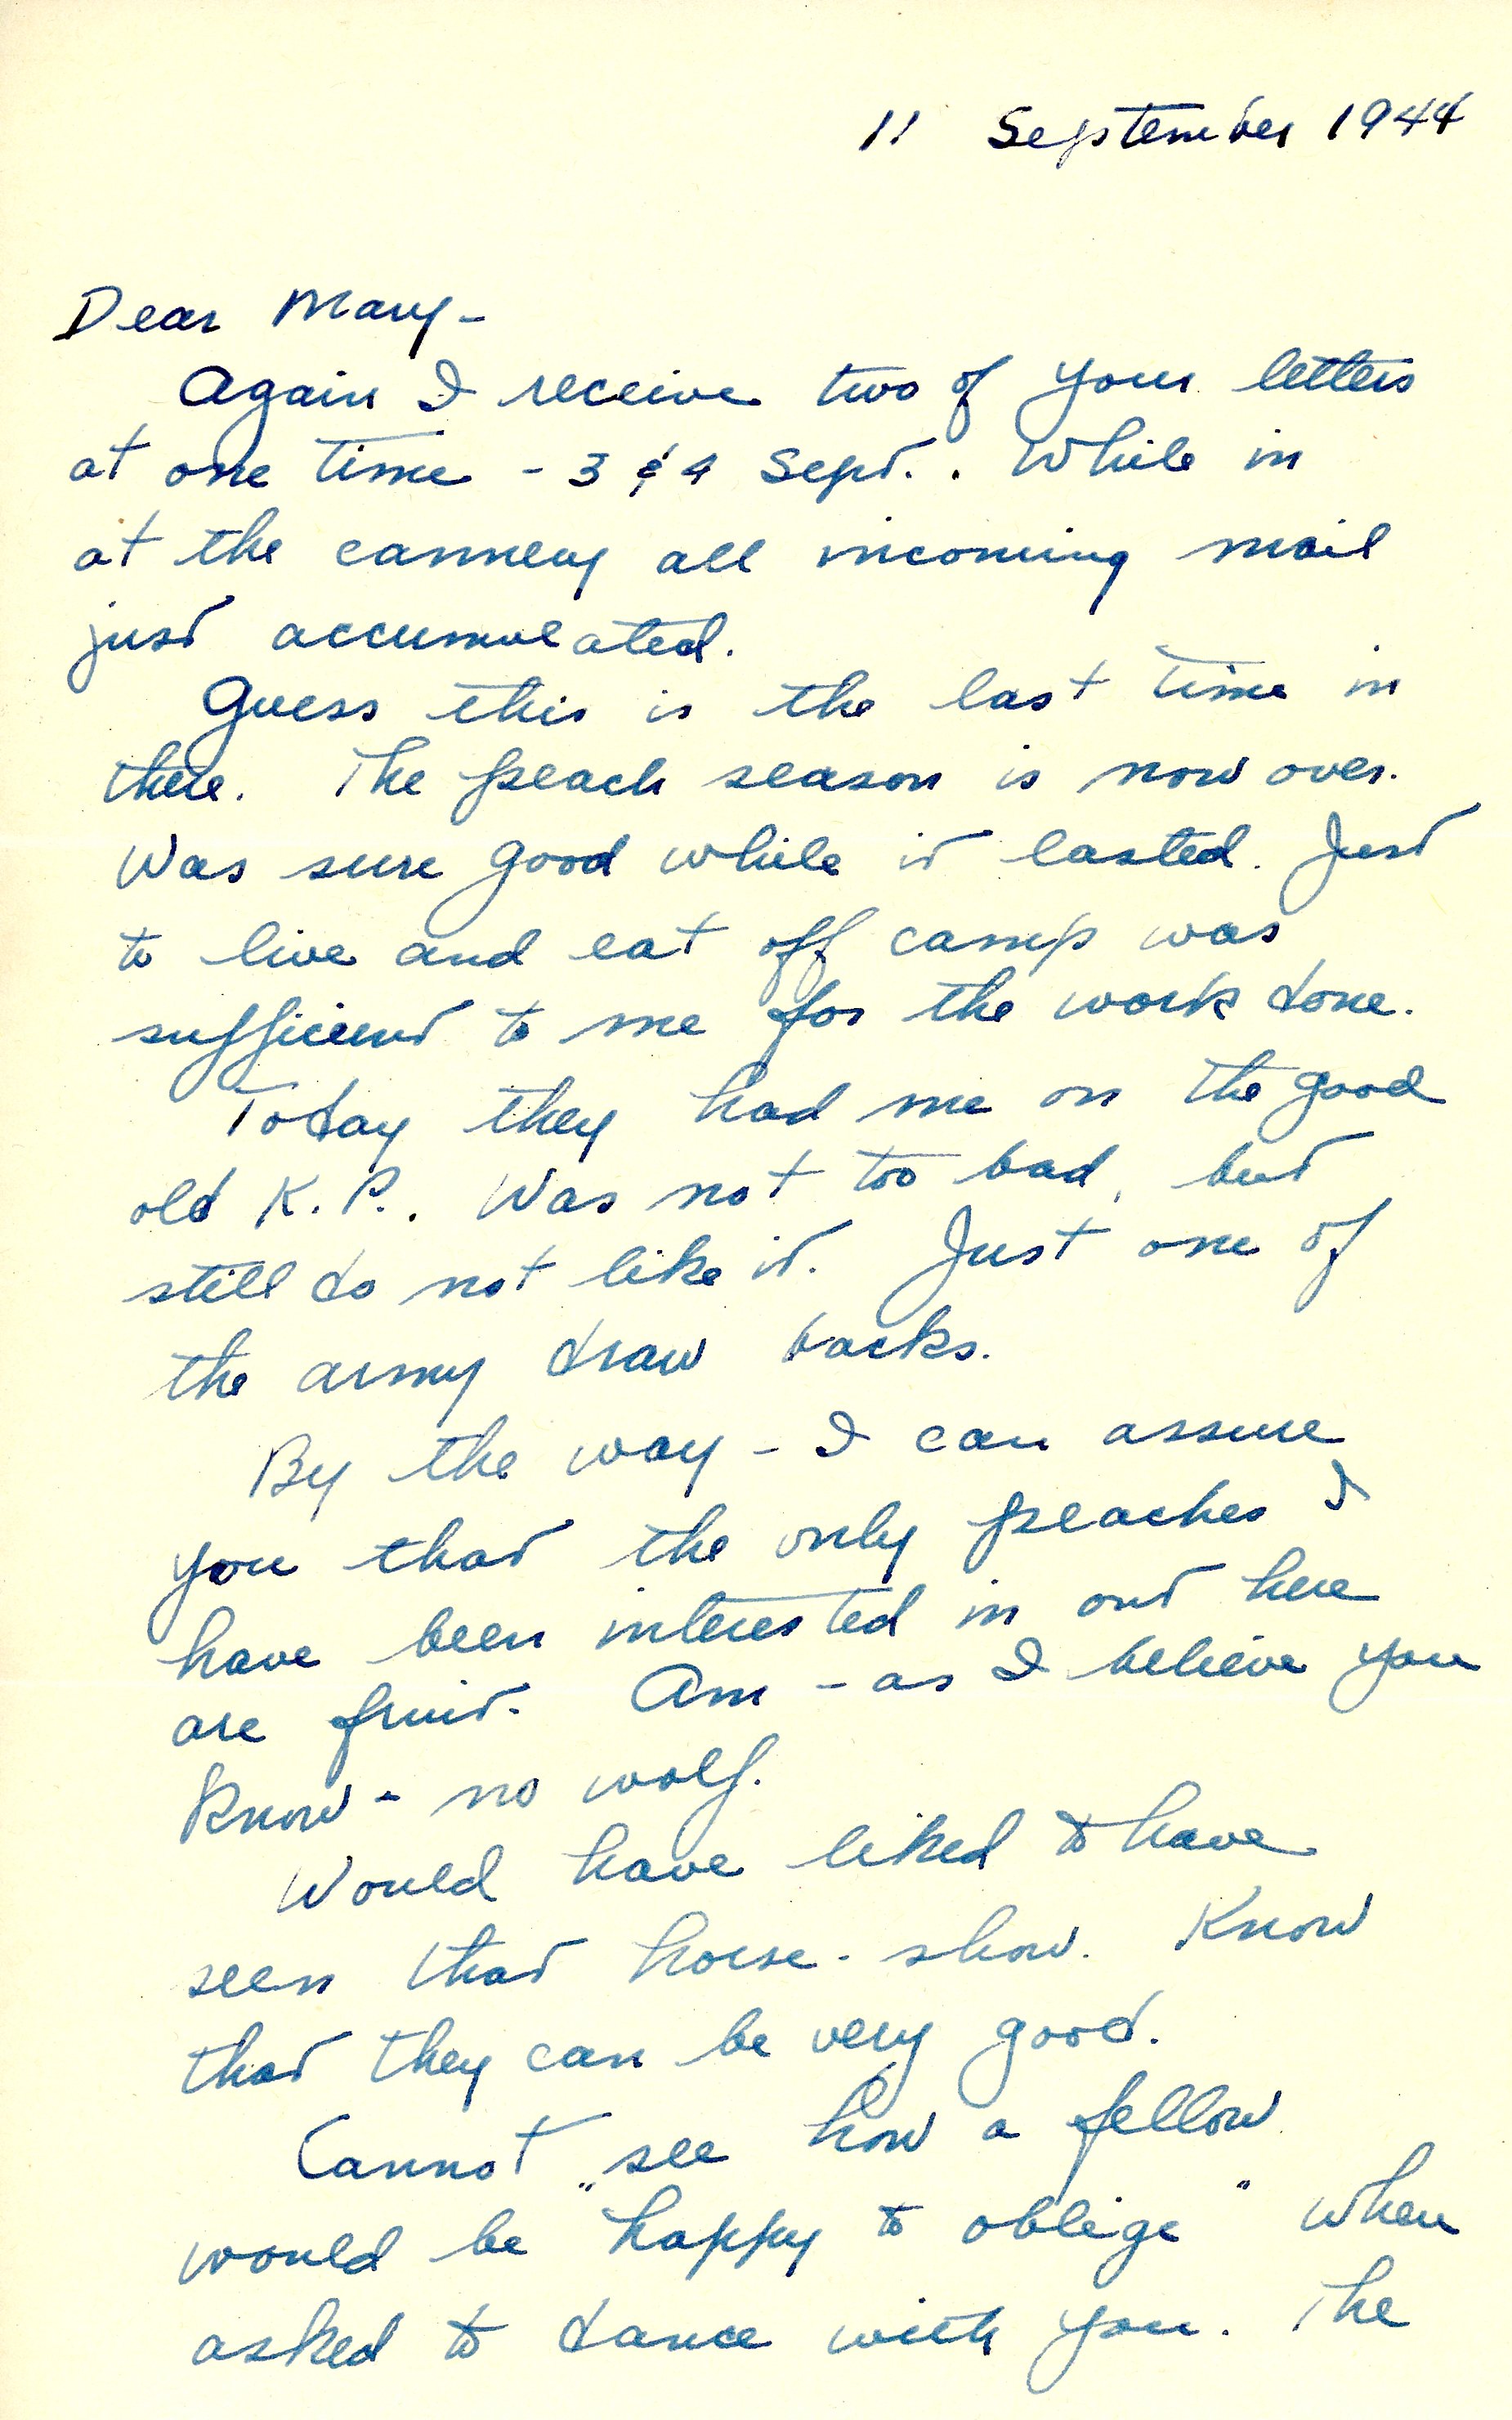 11 September 1944
Dear Mary-
Again I receive two of your letters
at one time - 3 & 4 Sept.. While in
at the cannery all incoming mail
just accumulated.
Guess this is the last time in
there. The peach season is now over.
Was sure good while it lasted. Just
to live and eat off camp was
sufficient to me for the work done.
Today they had me on the good
old K.P.. Was not too bad, but
still do not like it. Just one of
the army draw backs.
By the way - I can assure
you that the only peaches I
have been interested in out here
are fruit. Am - as I believe you
know - no wolf.
Would have liked to have
seen that horse-show. Know
that they can be very good.
Cannot see how a fellow
would be "happy to oblige" when
asked to dance with you. The